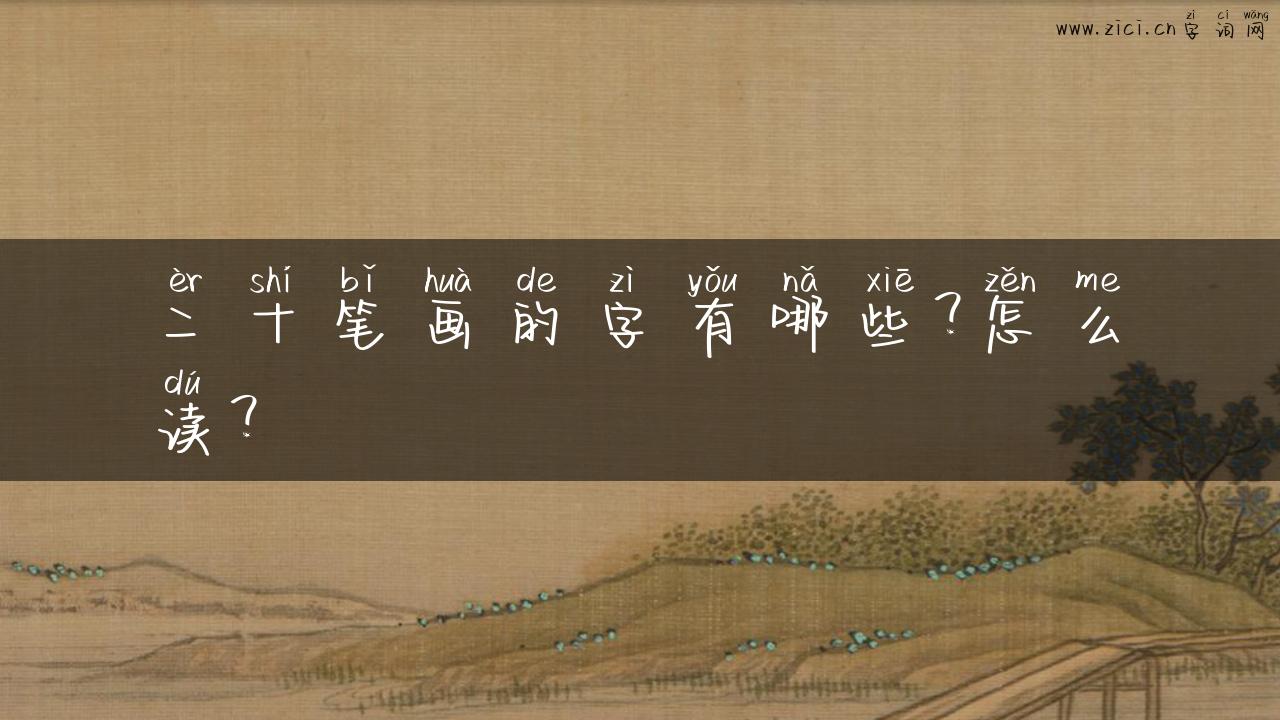 zì cí wǎng
www.zici.cn字词网
èr shí bǐ huà de zì yǒu nǎ xiē zěn me
二十笔画的字有哪些?怎么
dú
读?